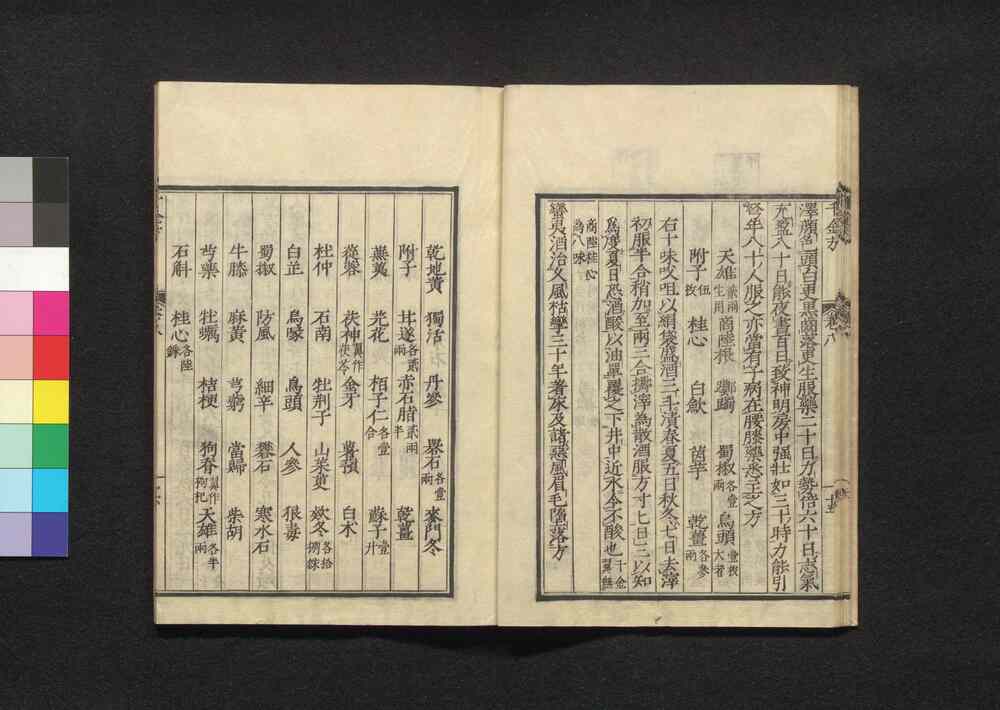 澤顔色頭白更黑齒落更生服藥二十日力勢倍六十日志氣
充盈八十日能夜書百日致神明房中强壯如三十時力能引
弩年八十人服之亦當有子病在腰膝藥悉主之方
天雄 生用 商陸根 躑躅 蜀椒 各壹兩 烏頭 壹枚大者
附子 伍枚 桂心 白歛 茵芋 乾薑 各參兩
右十味㕮咀以絹袋盛酒三斗漬春夏五日秋冬七日去滓
初服半合稍加至兩三合擣滓爲散酒服方寸匕日三以知
爲度夏日恐酒酸以油單覆之下井中近水令不酸也 千金翼無
商陸桂心爲八味
蠻夷酒治久風枯攣三十年著牀及諸惡風眉毛墮落方
乾地黃 獨活 丹參 礜石 各壹兩 麥門冬
附子 甘遂 各貳兩 赤石脂 貳兩半 乾薑
蕪荑 芫花 栢子仁 各壹合 蘇子 壹升
蓯蓉 茯神 翼作茯苓 金牙 薯蕷 白朮
杜仲 石南 牡荆子 山茱萸 款冬 各拾捌銖
白芷 烏喙 烏頭 人參 狼毒
蜀椒 防風 細辛 礬石 寒水石
牛膝 麻黃 芎藭 當歸 柴胡
芍藥 牡蠣 桔梗 狗脊 翼作枸杞 天雄 各半兩
石斛 桂心 各陸銖